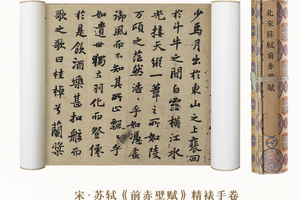 少焉月出於東山之上徘徊
於斗牛之間白露橫江水
光接天縱一葦之所如陵
万頃之茫然浩乎如馮虛
御風而不知其所止飄乎
如遺世獨立羽化而登僊
於是飲酒樂甚扣舷而
歌之歌曰桂棹兮蘭槳
北宋蘇軾前赤壁賦
宋·苏轼《前赤壁赋》精裱手卷